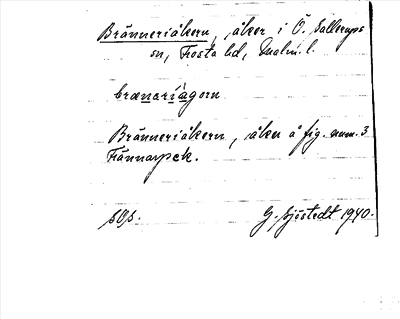 Bränneriåkern, åker i Ö. Sallerups
sn, Frosta hd, Malm. l.
brænəríågorn
Bränneriåkern, åker å fig. num. 3
Frännarpck.
SOS.
G. Sjöstedt 1940.